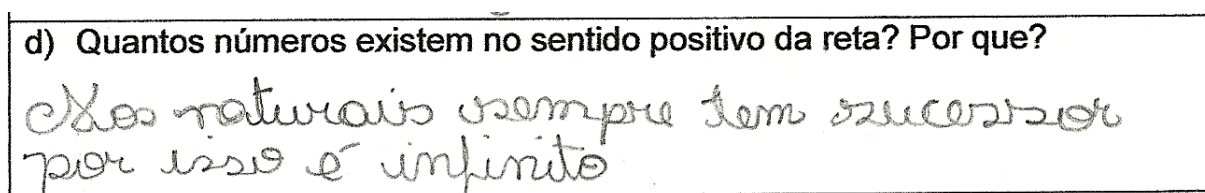 d) Quantos números existem no sentido positivo da reta? Por que?
Nos naturais sempre tem sucessor
por isso é infinito